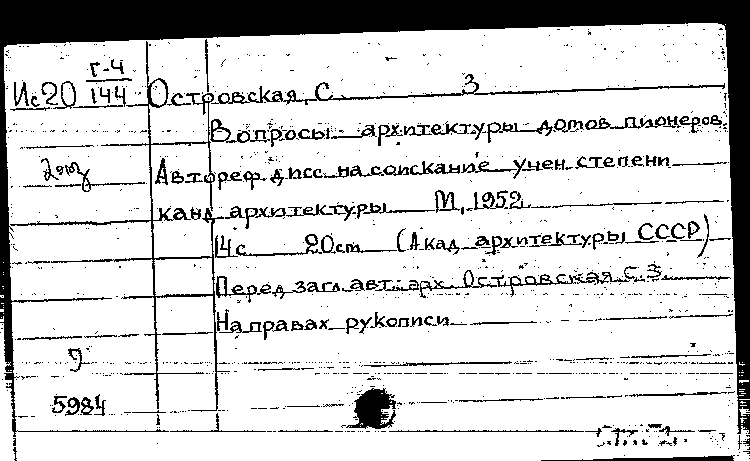 Г-4
Ис20 144 Островская, С З
Вопросы архитектуры домов пионеров.
2 экз Автореф. дисс. на соискание учен. степени
канд. архитектуры. М., 1952.
14 с. 20 см (Акад. архитектуры СССР)
Перед загл. авт.: арх. Островская С. З.
На правах рукописи
5984